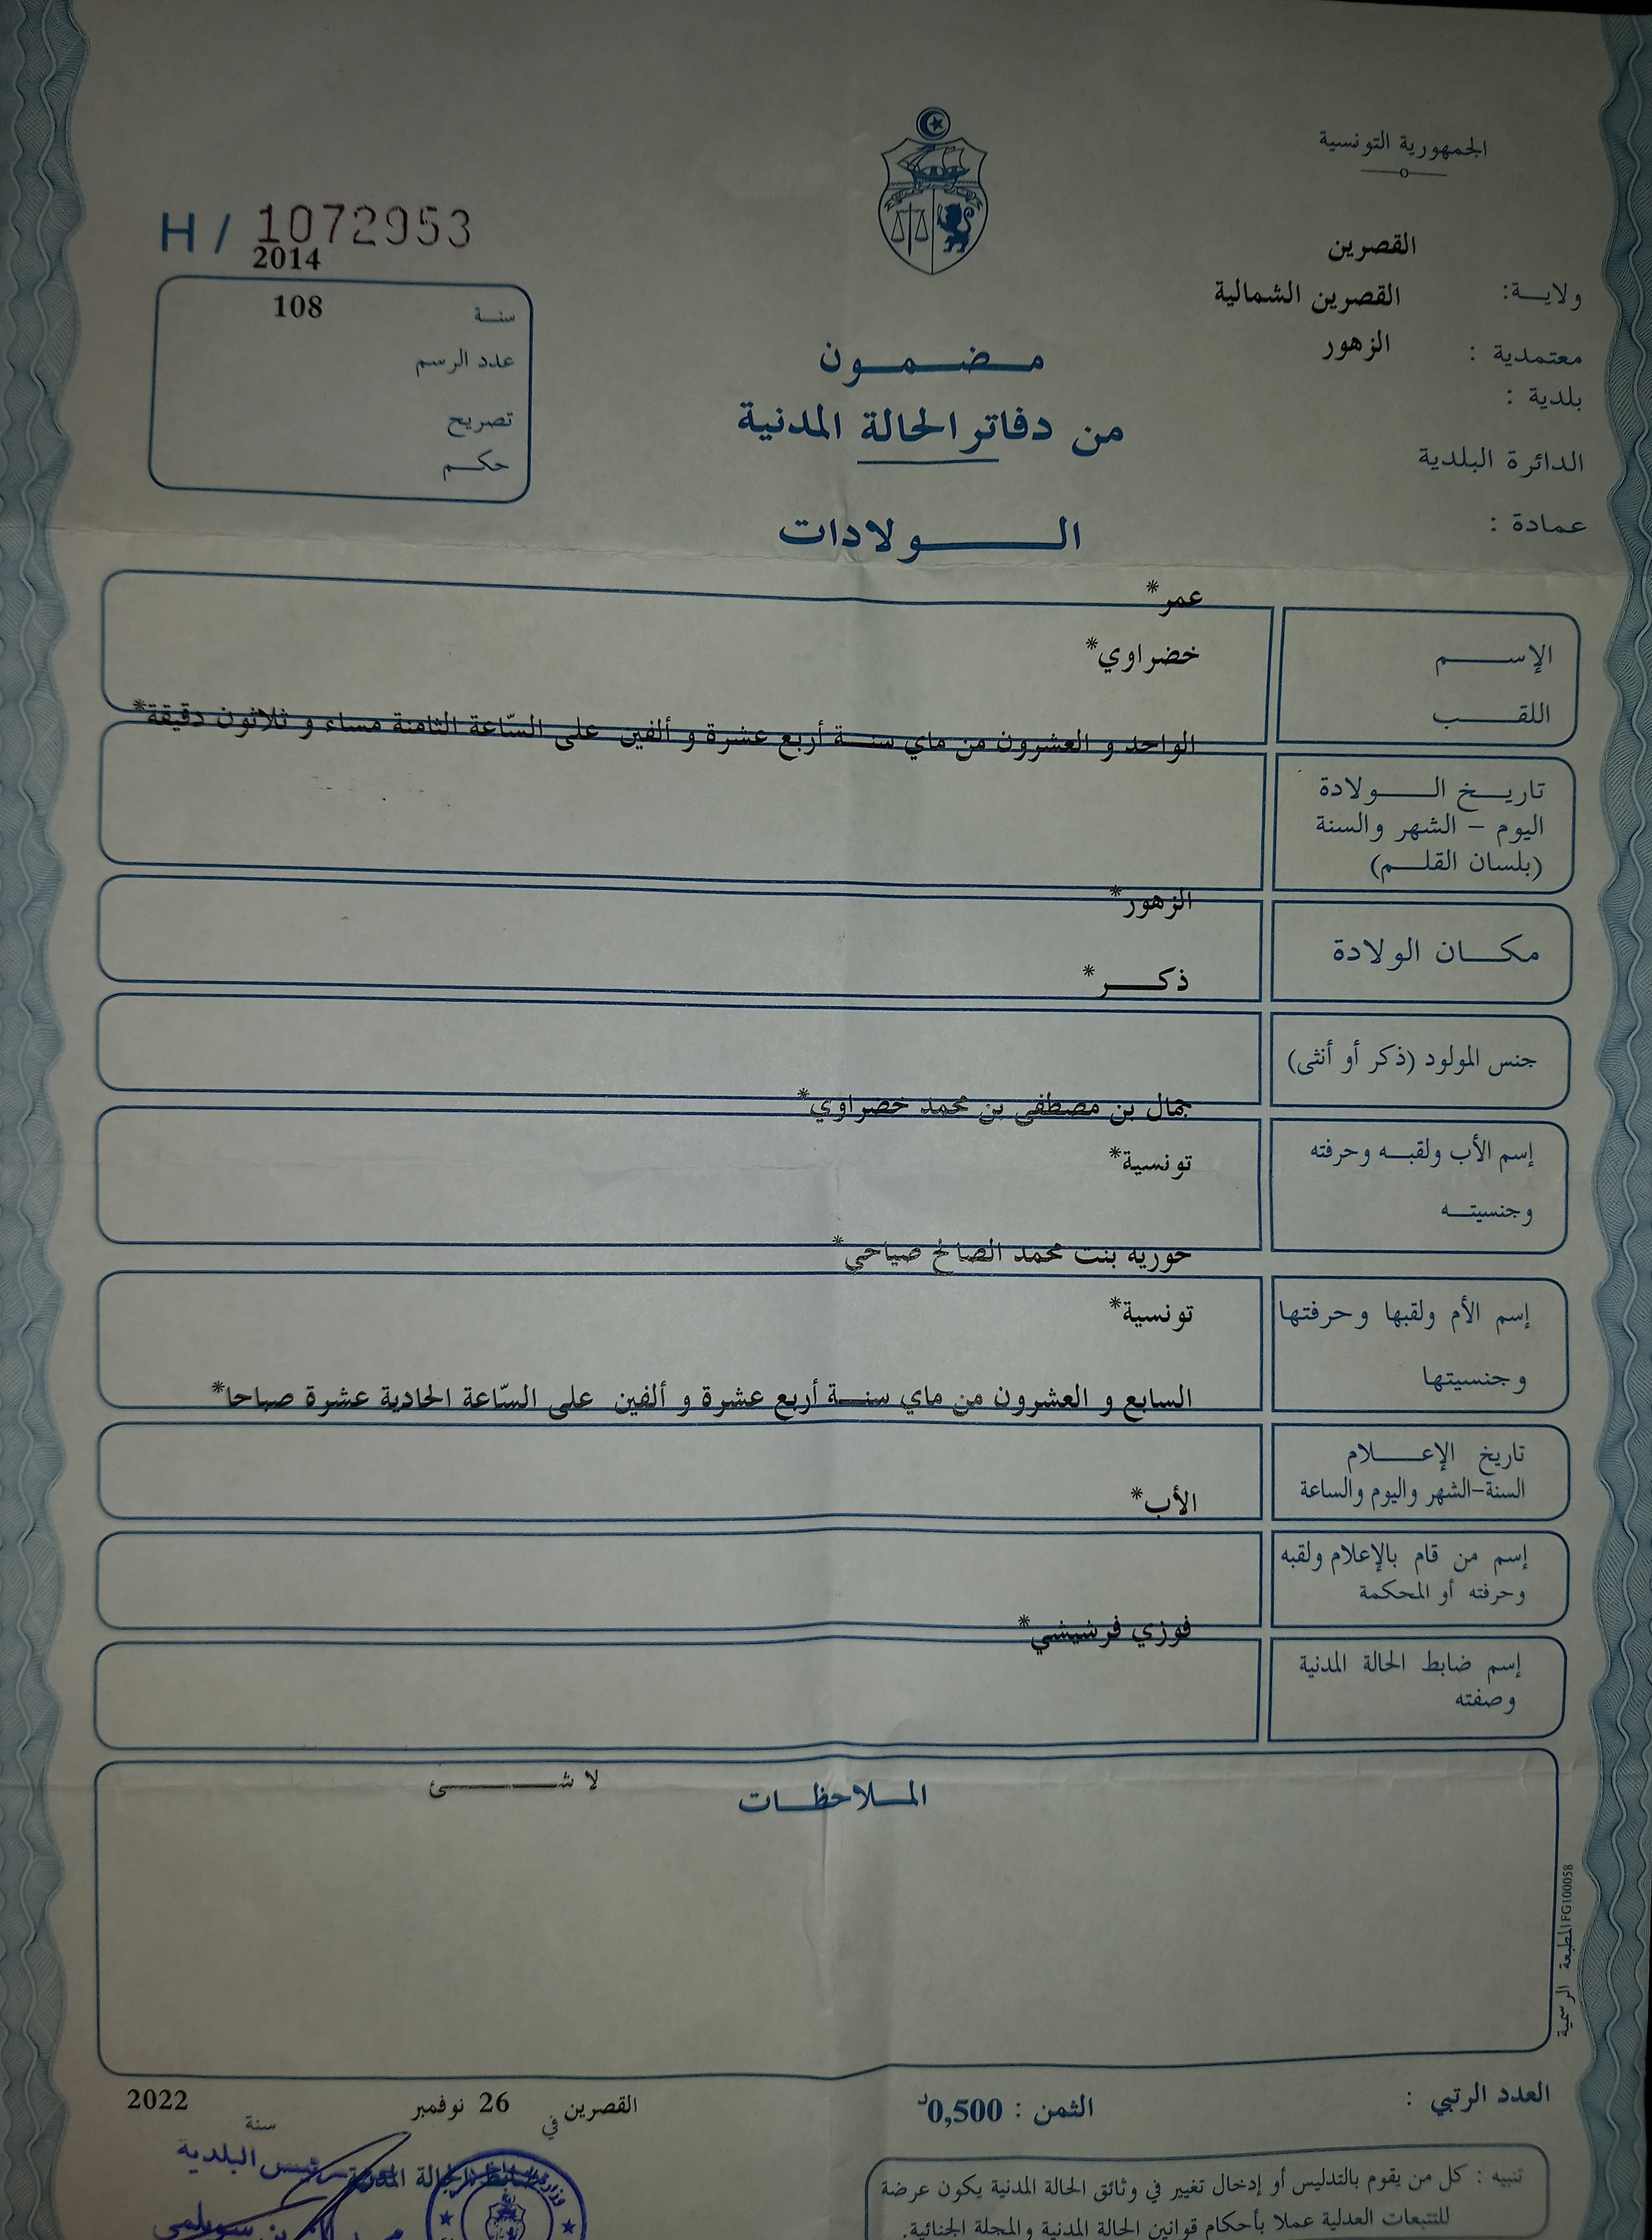 الجمهورية التونسية
H / 1072953
2014
القصرين
ولاية:
القصرين الشمالية
108
سنة
معتمدية :
الزهور
مضمون
عدد الرسم
بلدية :
من دفاتر الحالة المدنية
تصريح
الدائرة البلدية
حكم
عمادة :
الولادات
عمر*
الإسم
خضراوي*
اللقب
الواحد و العشرون من ماي سنة أربع عشرة و ألفين على السّاعة الثامنة مساء و ثلاثون دقيقة*
تاريخ الولادة
اليوم – الشهر والسنة
(بلسان القلم)
الزهور*
مكان الولادة
ذكر*
جنس المولود (ذكر أو أنثى)
جمال بن مصطفى بن محمد خضراوي*
إسم الأب ولقبه وحرفته
تونسية*
وجنسيته
حورية بنت محمد الصالح صياحي*
إسم الأم ولقبها وحرفتها
تونسية*
وجنسيتها
السابع و العشرون من ماي سنة أربع عشرة و ألفين على السّاعة الحادية عشرة صباحا*
تاريخ الإعلام
السنة-الشهر واليوم والساعة
الأب*
إسم من قام بالإعلام ولقبه
وحرفته أو المحكمة
فوزي فرشيشي*
إسم ضابط الحالة المدنية
وصفته
لا شئ
الملاحظات
المطبعة الرسمية FG100058
العدد الرتبي :
الثمن : 0,500د
القصرين في 26 نوفمبر سنة 2022
رئيس البلدية
ضابط الحالة المدنية
تنبيه : كل من يقوم بالتدليس أو إدخال تغيير في وثائق الحالة المدنية يكون عرضة
للتتبعات العدلية عملا بأحكام قوانين الحالة المدنية والمجلة الجنائية.